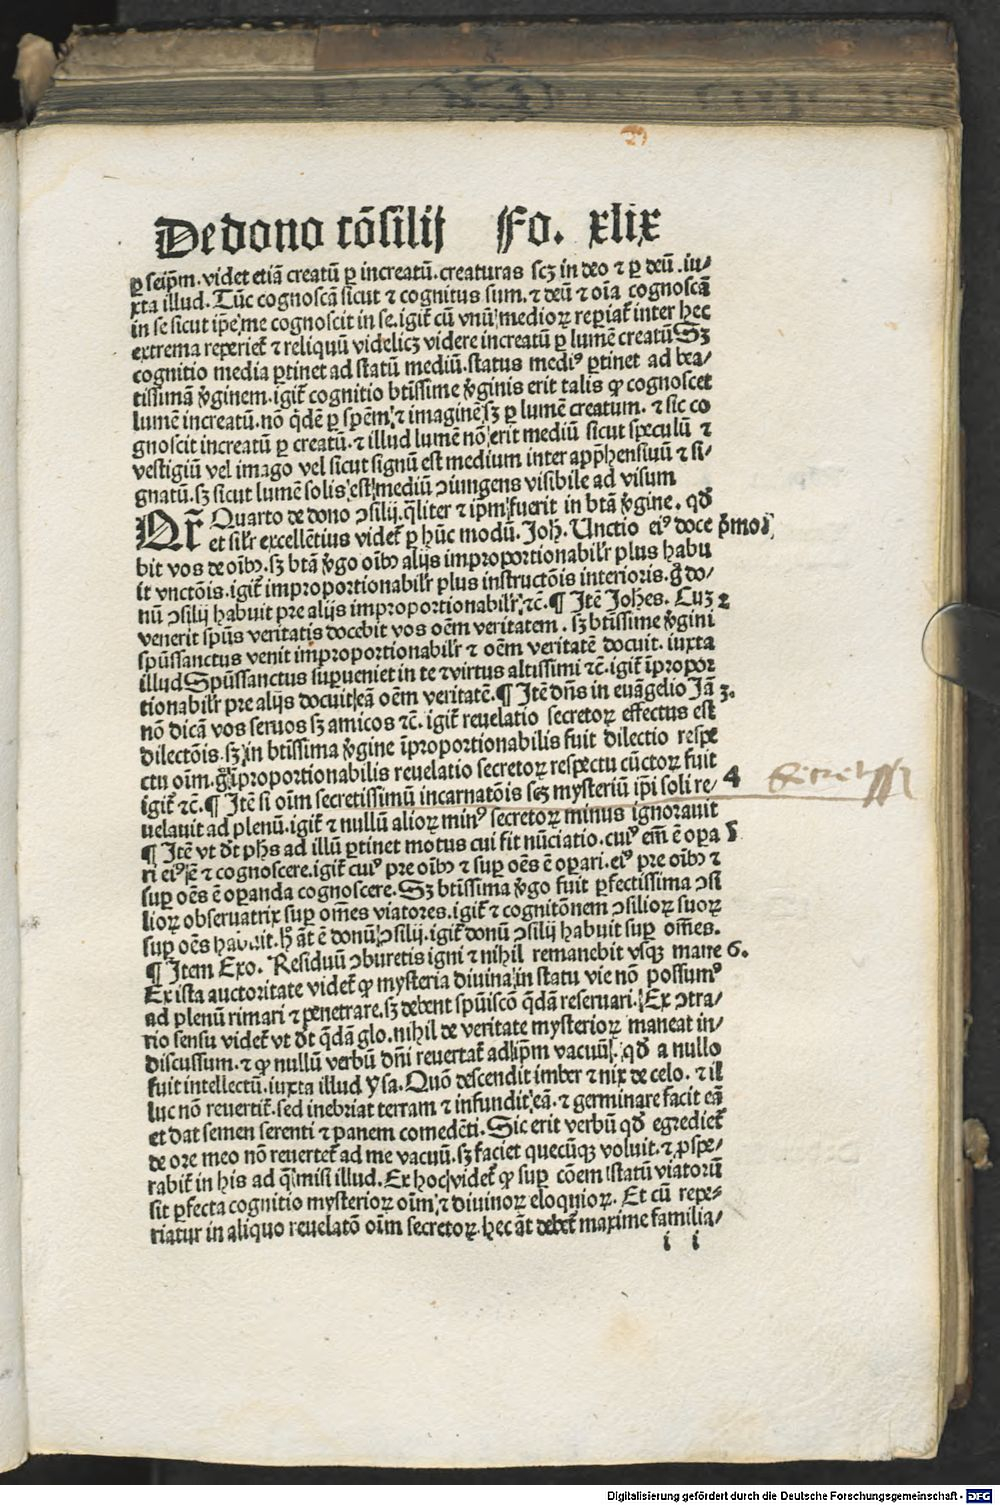 De dono cōsilij Fo. xlix
ꝑ seip̄m. videt etiā creatū ꝑ increatū. creaturas scꝫ in deo ⁊ ꝑ deū. iu-
xta illud. Tūc cognoscā sicut ⁊ cognitus sum. ⁊ deū ⁊ oīa cognoscā
in se sicut ip̄e me cognoscit in se. igit̄ cū vnū medioꝝ reꝑiat̄ inter hec
extrema reperiet̄ ⁊ reliquū videlicꝫ videre increatū ꝑ lumē creatū Sꝫ
cognitio media ꝑtinet ad statū mediū. status mediꝰ ꝑtinet ad bea-
tissimā v̄ginem. igit̄ cognitio btīssime v̄ginis erit talis ꝙ cognoscet
lumē increatū. nō q̄dē ꝑ sp̄em ⁊ imaginē sꝫ ꝑ lumē creatum. ⁊ sic co
gnoscit increatū ꝑ creatū. ⁊ illud lumē nō erit mediū sicut speculū ⁊
vestigiū vel imago vel sicut signū est medium inter app̄hensiuū ⁊ si-
gnatū. sꝫ sicut lumē solis est mediū ↄiungens visibile ad visum
Quarto de dono ↄsilij. q̄liter ⁊ ip̄m fuerit in btā v̄gine. qđ
et sil̄r excellētius videt̄ ꝑ hūc modū. Joh̄. Unctio eiꝰ doce p̄mo
bit vos de oībꝰ. sꝫ btā v̄go oībꝰ alijs improportionabilr̄ plus habu
it vnctōis. igit̄ improportionabilr̄ plus instructōis interioris. g̊ do-
nū ↄsilij habuit pre alijs improportionabilr̄. ⁊c̄. ¶ Itē Joh̄es. Cuꝫ 2
venerit sp̄us veritatis docebit vos oēm veritatem. sꝫ btīssime v̄gini
sp̄ussanctus venit improportionabilr̄ ⁊ oēm veritatē docuit. iuxta
illud Sp̄ussanctus suꝑueniet in te ⁊ virtus altissimi ⁊c̄. igit̄ īpropor
tionabilr̄ pre alijs docuit eā oēm veritatē. ¶ Itē dn̄s in euāgelio Jā 3.
nō dicā vos seruos sꝫ amicos ⁊c̄. igit̄ reuelatio secretoꝝ effectus est
dilectōis. sꝫ in btīssima v̄gine īproportionabilis fuit dilectio respe
ctu oīm. g̊ īproportionabilis reuelatio secretoꝝ respectu cūctoꝝ fuit
igit̄ ⁊c̄. ¶ Itē si oīm secretissimū incarnatōis scꝫ mysteriū ip̄i soli re- 4
uelauit ad plenū. igit̄ ⁊ nullū alioꝝ minꝰ secretoꝝ minus ignorauit
¶ Itē vt dt̄ ph̄s ad illū ꝑtinet motus cui fit nūciatio. cuiꝰ em̄ ē oꝑa 5
ri eiꝰ ē ⁊ cognoscere. igit̄ cuiꝰ pre oībꝰ ⁊ suꝑ oēs ē oꝑari. eiꝰ pre oībꝰ ⁊
suꝑ oēs ē oꝑanda cognoscere. Sꝫ btīssima v̄go fuit ꝑfectissima ↄsi
lioꝝ obseruatrix suꝑ om̄es viatores. igit̄ ⁊ cognitōnem ↄsilioꝝ suoꝝ
suꝑ oēs habuit. h̊ āt ē donū ↄsilij. igit̄ donū ↄsilij habuit suꝑ om̄es.
¶ Item Exo. Residuū ↄburetis igni ⁊ nihil remanebit vsqꝫ mane 6.
Ex ista auctoritate videt̄ ꝙ mysteria diuina in statu vie nō possumꝰ
ad plenū rimari ⁊ penetrare. sꝫ debent sp̄uiscō q̄dā reseruari. Ex ↄtra-
rio sensu videt̄ vt dt̄ q̄dā glo. nihil de veritate mysterioꝝ maneat in-
discussum. ⁊ ꝙ nullū verbū dn̄i reuertat̄ ad ip̄m vacuū. qđ a nullo
fuit intellectū. iuxta illud Ysa. Quō descendit imber ⁊ nix de celo. ⁊ il
luc nō reuertit̄. sed inebriat terram ⁊ infundit eā. ⁊ germinare facit eā
et dat semen serenti ⁊ panem comedēti. Sic erit verbū qđ egrediet̄
de ore meo nō reuertet̄ ad me vacuū. sꝫ faciet quecūqꝫ voluit. ⁊ ꝓspe-
rabit̄ in his ad q̄ misi illud. Ex hoc videt̄ ꝙ suꝑ cōem statū viatorū
sit ꝑfecta cognitio mysterioꝝ oīm ⁊ diuinoꝝ eloquioꝝ. Et cū repe-
riatur in aliquo reuelatō oīm secretoꝝ. hec āt debet̄ maxime familia-
i i
Digitalisierung gefördert durch die Deutsche Forschungsgemeinschaft - DFG